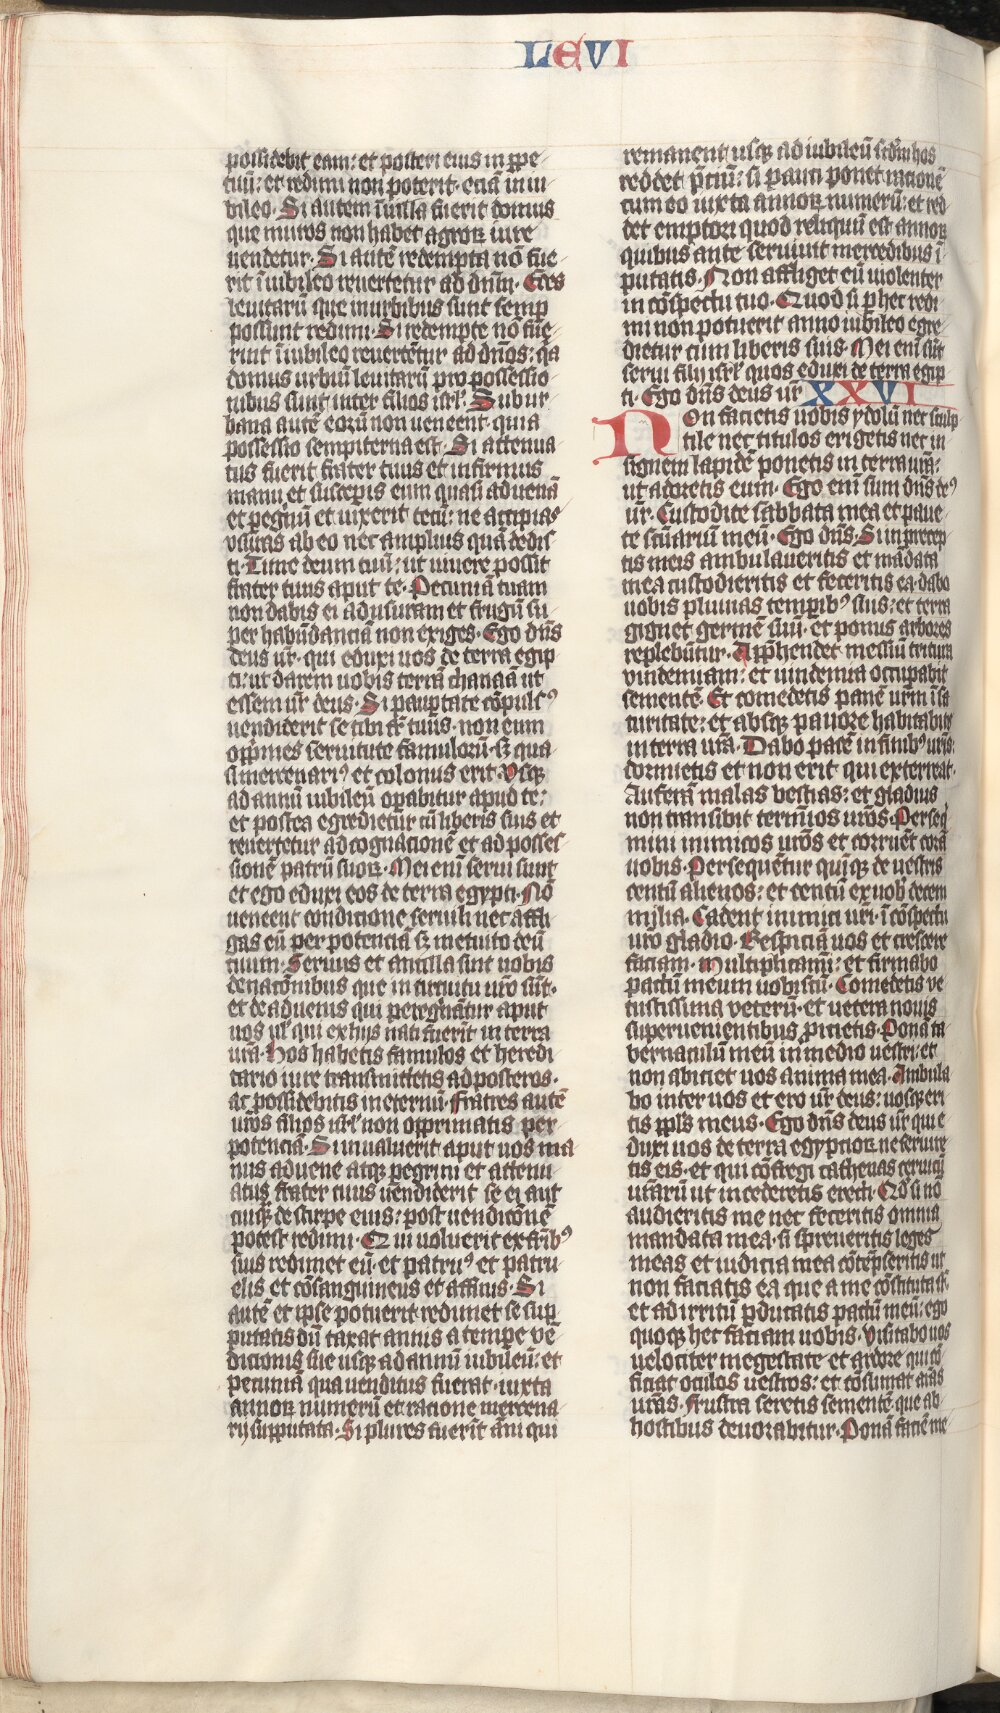 LEVI
possidebit eam: et posteri eius in ꝑpe
tuū: et redimi non poterit· eciā in iu
bileo· Si autem ī uilla fuerit domus
que muros non habet agroꝝ iure
uendetur· Si autē redempta nō fue
rit ī iubileo reuertetur ad dn̄m· Edes
leuitarū que in urbibus sunt semꝑ
possunt redimi· Si redempte nō fue
rint ī iubileo reuertētur ad dn̄os: q̄a
domus urbiū leuitarū pro possessio
nibus sunt inter filios isrl̄· Subur
bana autē eorū non ueneent· quia
possessio sempiterna est· Si attenua
tus fuerit frater tuus et infirmus
manu et susceperis eum quasi aduenā
et ꝑegrinū et uixerit tecū: ne accipias
vsuras ab eo nec amplius quā dedis
ti· Time deum tuū: ut uiuere possit
frater tuus aput te· Pecuniā tuam
non dabis ei ad usuram et frugū su
per habūdanciā non exiges· Ego dn̄s
deus ur̄· qui eduxi uos de terra egip
ti: ut darem uobis terrā chanaā ut
essem ur̄ deus· Si pauꝑtate cōpulsꝰ
uendiderit se tibi fr̄ tuus· non eum
opp̄mes seruitute famulorū· sꝫ qua
si mercenariꝰ et colonus erit· Vsqꝫ
ad annū iubileū oꝑabitur apud te:
et postea egredietur cū liberis suis et
reuertetur ad cognacionē et ad posses
sionē patrū suoꝝ· Mei enī serui sunt
et ego eduxi eos de terra egypti· Nō
ueneent condicione seruili nec affli
gas eū per potenciā sꝫ metuito deū
tuum· Seruus et ancilla sint uobis
de nacōnibus que in circuitu ur̄o sūt·
et de aduenis qui peregrinātur aput
uos ul̓ qui ex hijs nati fuerīt in terra
ur̄a· Hos habetis famulos et heredi
tario iure transmittetis ad posteros·
ac possidebitis in eternū· Fratres autē
ur̄os filios isrl̄ non opprimatis per
potenciā· Si inualuerit aput uos ma
nus aduene atqꝫ ꝑegrini et attenu
atus frater tuus uendiderit se ei aut
cuiqꝫ de stirpe eius: post uendicōnē
potest redimi· Qui uoluerit ex fr̄ibꝰ
suis redimet eū· et patruꝰ et patru
elis et cōsanguineus et affinis· Si
autē et ipse potuerit redimet se suꝑ
putatis dū taxat annis a tempe ve
dicionis sue usqꝫ ad annū iubileū: et
pecuniā qua uenditus fuerat· iuxta
annoꝝ numerū et racione mercena
rij supputata· Si plures fuerīt āni qui
remanent usqꝫ ad iubileū scd̄m hos
reddet p̄ciū: si pauci ponet racionē
cum eo iuxta annoꝝ numerū: et red
det emptori quod reliquū est annoꝝ
quibus ante seruiuit mercedibus ī
putatis· Non affliget eū uiolenter
in cōspectu tuo· Quod si ꝑ hec redi
mi non potuerit anno iubileo egre
dietur cum liberis suis· Mei enī sūt
serui filij isrl̄ quos eduxi de terra egip
ti· Ego dn̄s deus ur̄ XXVI
Non facietis uobis ydolū nec sculp
tile nec titulos erigetis nec in
signem lapidē ponetis in terra ur̄a:
ut adoretis eum· Ego enī sum dn̄s deꝰ
ur̄· Custodite sabbata mea et paue
te scūariū meū· Ego dn̄s· Si in precep
tis meis ambulaueritis et mādata
mea custodieritis et feceritis ea· dabo
uobis pluuias temꝑibꝰ suis: et terra
gignet germē suū· et pomis arbores
replebūtur· App̄hendet messiū tritura
vindemiam: et uindemia occupabit
sementē· Et comedetis panē ur̄m ī sa
turitate: et absqꝫ pauore habitabitis
in terra ur̄a· Dabo pacē in finibꝰ ur̄is:
dormietis et non erit qui exterreat·
Auferā malas bestias: et gladius
non transibit termīos ur̄os· Perseq̄
mini inimicos ur̄os et corruēt corā
uobis· Persequētur quīqꝫ de uestris
centū alienos: et centū ex uob̓ decem
milia· Cadent inimici ur̄i· ī cōspectu
ur̄o gladio· Respiciā uos et crescere
faciam· Multiplicamī: et firmabo
pactū meum uobiscū· Comedetis ve
tustissima veterū· et uetera nouis
superuenientibus ꝓicietis· Ponā ta
bernaculū meū in medio uestri: et
non abiciet uos anima mea· Ambula
bo inter uos et ero ur̄ deus: uosqꝫ eri
tis ppl̄s meus· Ego dn̄s deus ur̄ qui e
duxi uos de terra egyptioꝝ ne seruire
tis eis· et qui cōfregi cathenas ceruicū
ur̄arū ut incederetis erecti· Qd̓ si nō
audieritis me nec feceritis omnia
mandata mea· si spreueritis leges
meas et iudicia mea cōtēpseritis ut
non faciatis ea que a me cōstituta st̄·
et ad irritū ꝑducatis pactū meū: ego
quoqꝫ hec faciam uobis· Visitabo uos
uelociter in egestate et ardore qui cō
ficiat oculos uestros: et cōsumat aīas
ur̄as· Frustra seretis sementē· que ab
hostibus deuorabitur· Ponā faciē me